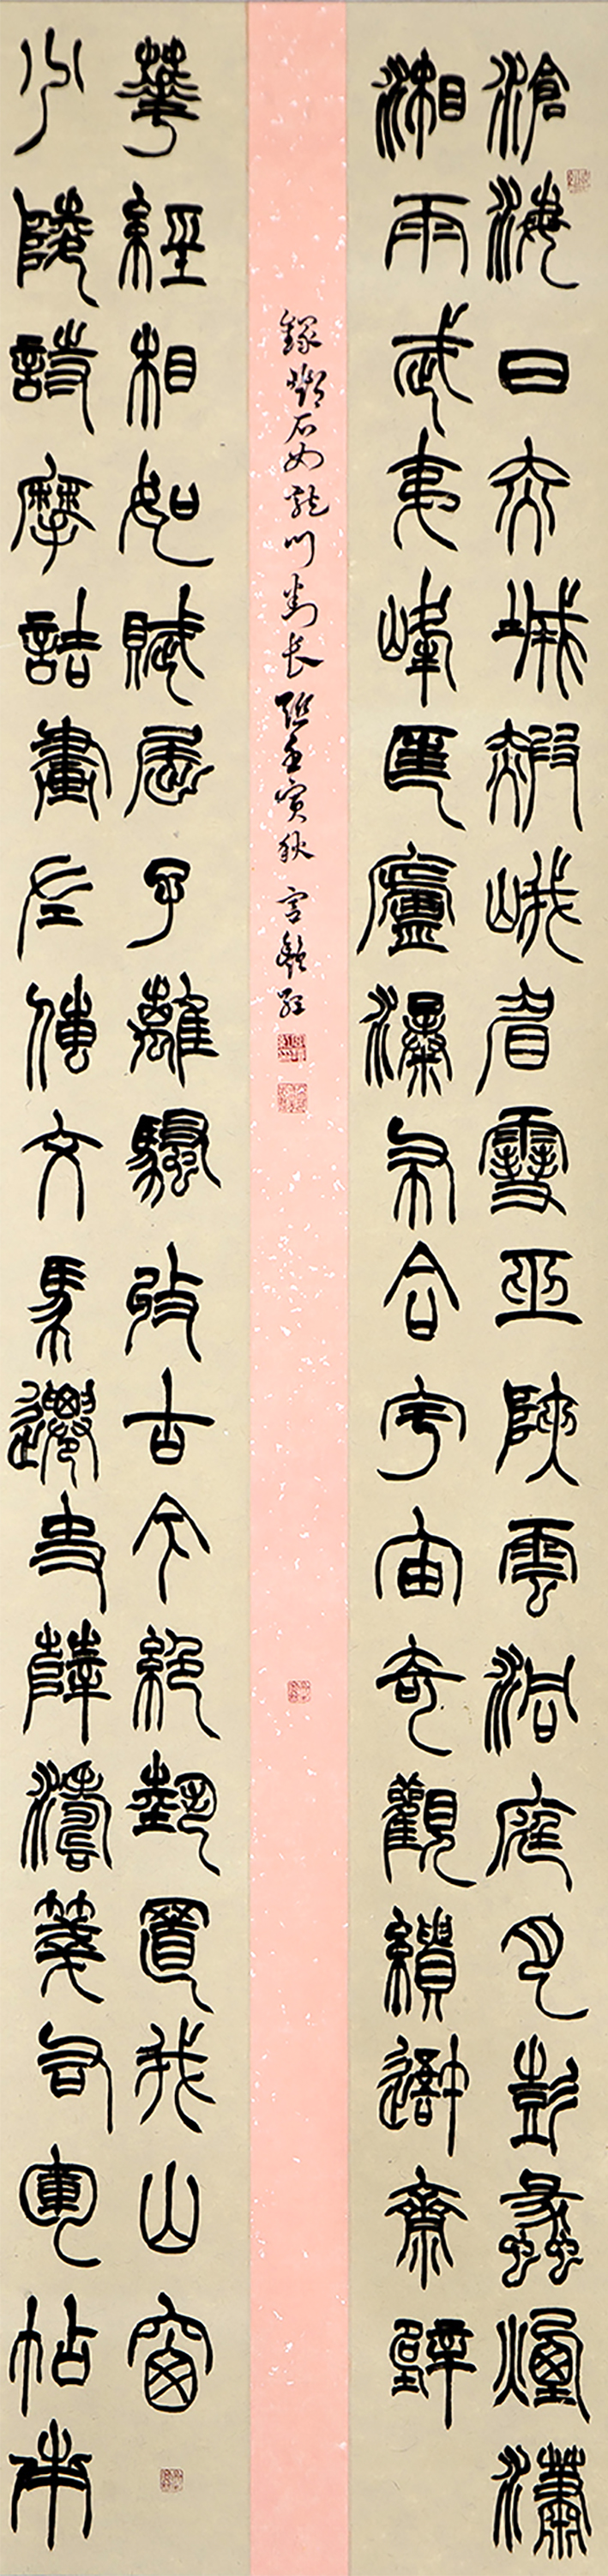 滄海日赤城霞峨眉雪巫峽雲洞庭月彭蠡煙瀟
湘雨武夷峰匡廬瀑布合宇宙奇觀繢吾齋壁
少陵詩摩詰畫左傳文馬遷史薛濤箋右軍帖南
華經相如賦屈子離騷收古今絕藝置我山窗
錄鄧石如龍門對長聯壬寅秋